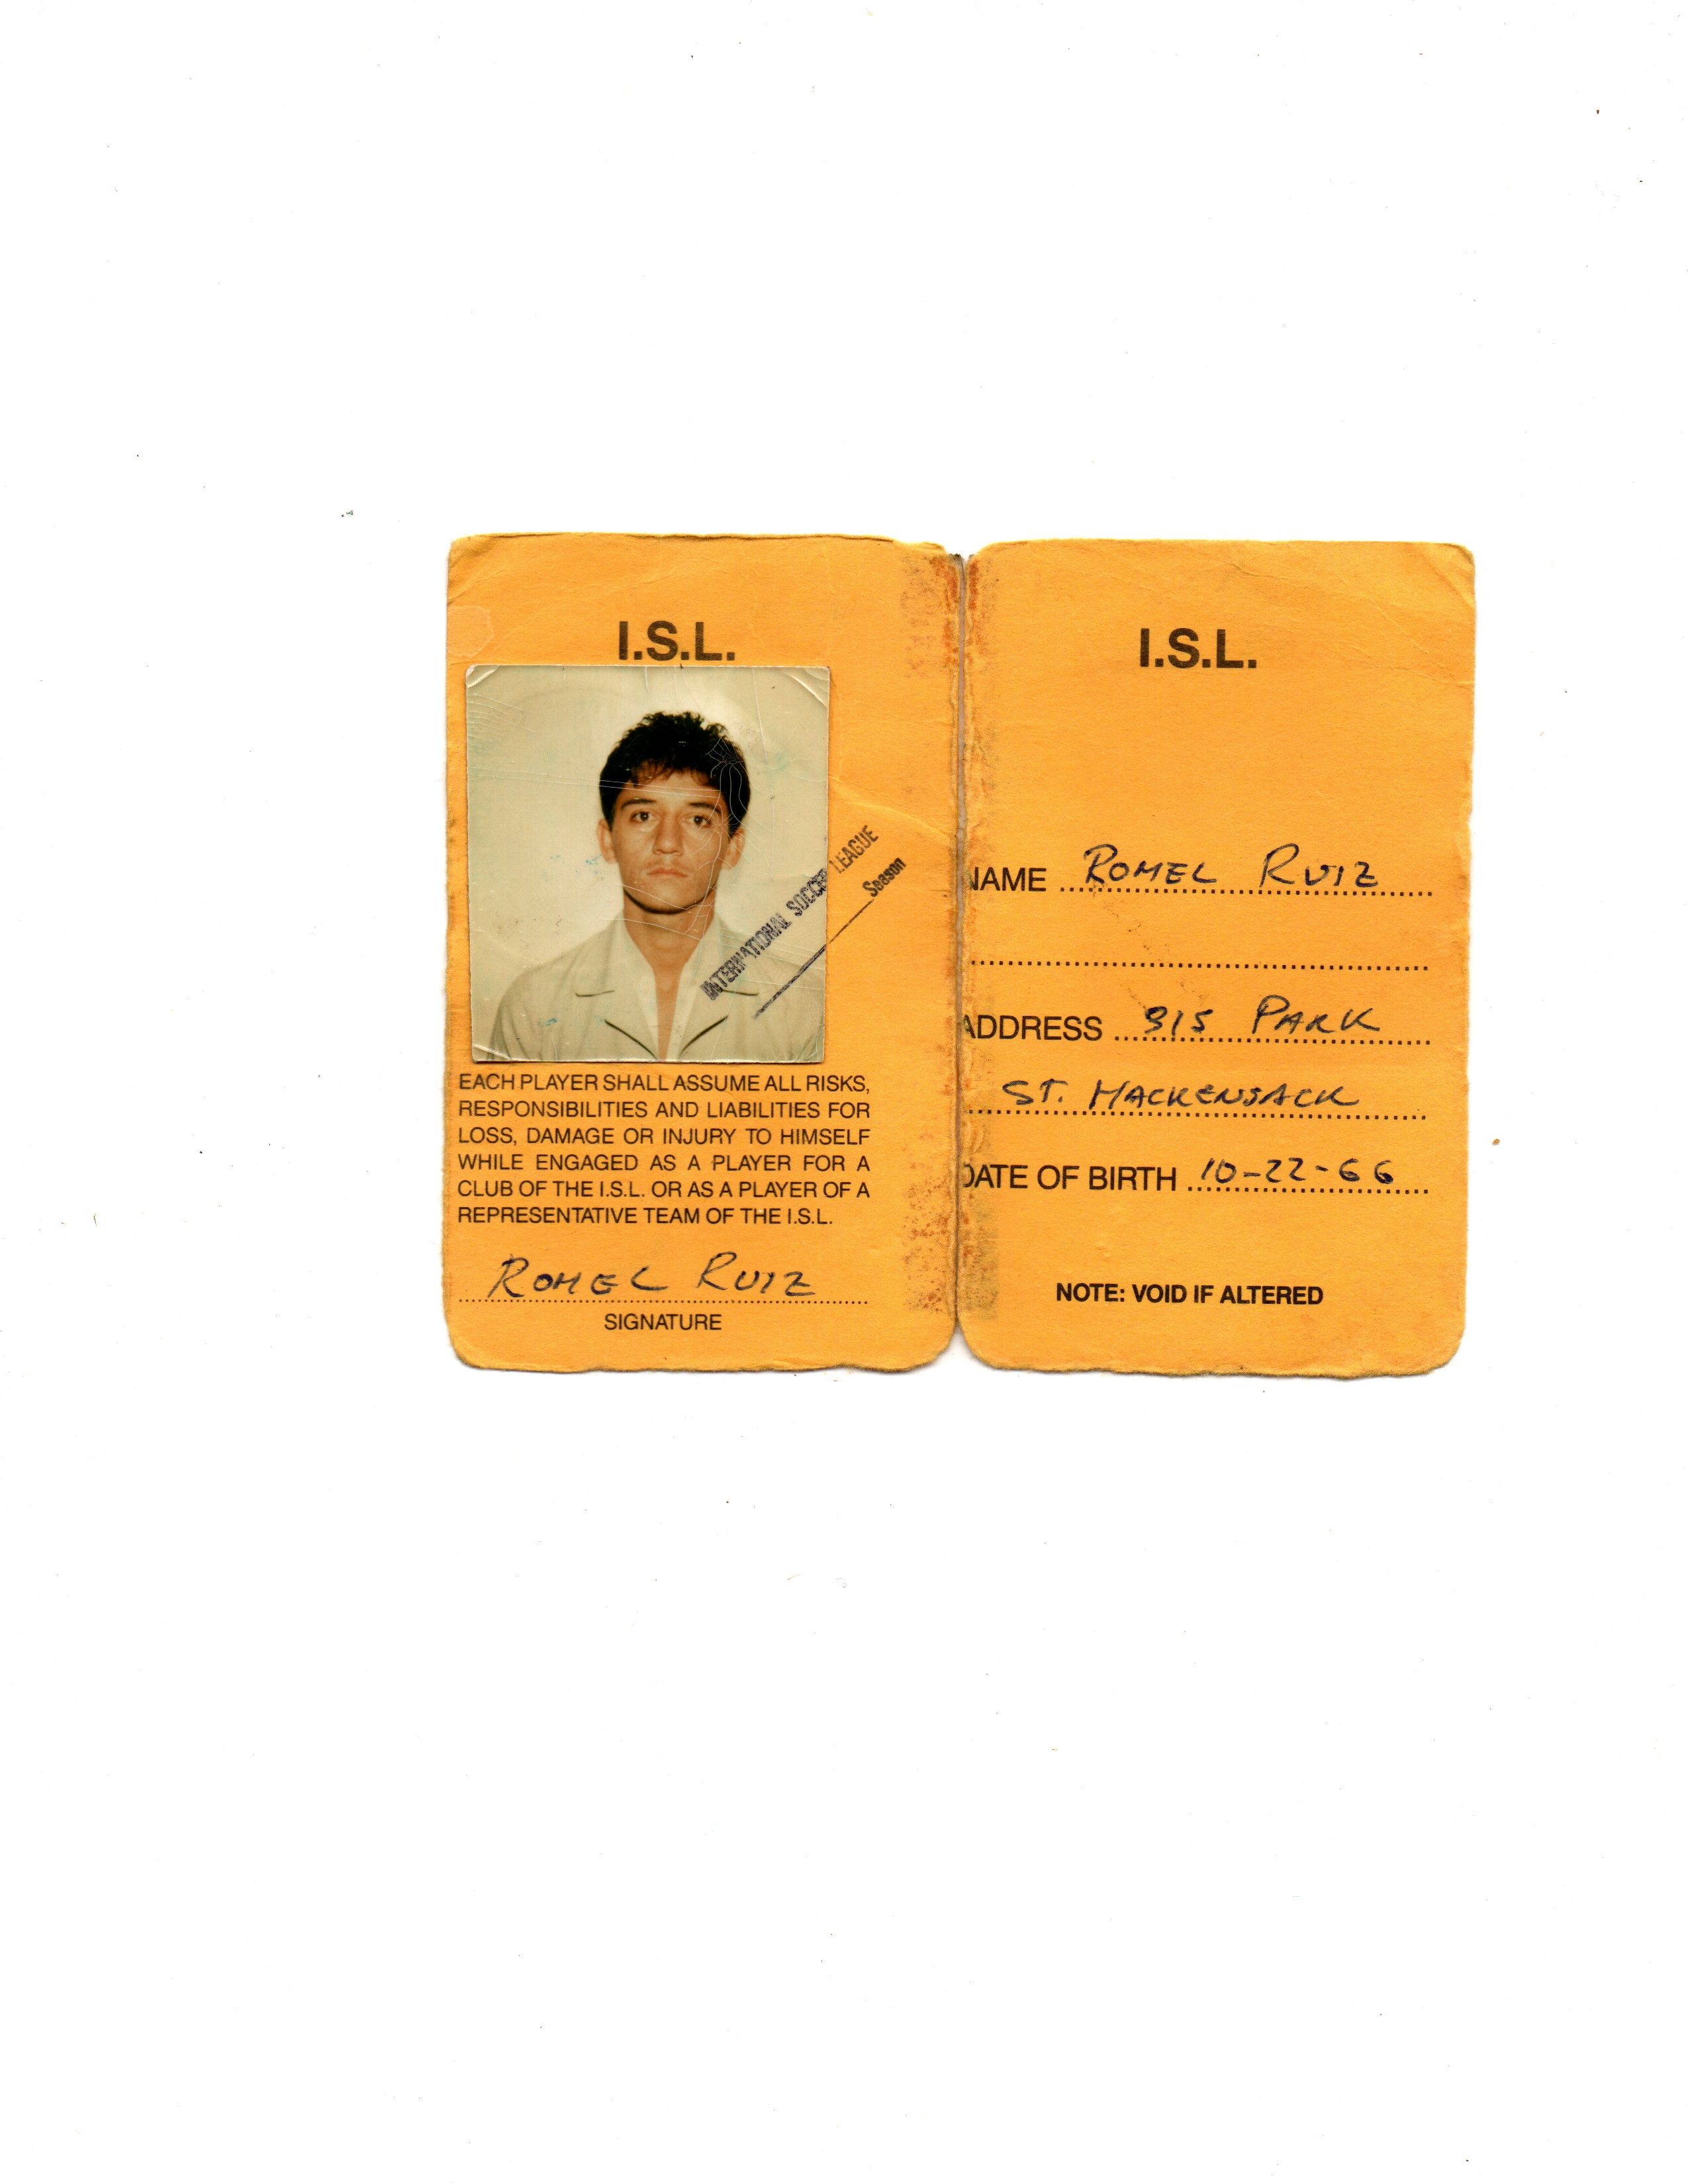 I.S.L.
INTERNATIONAL SOCCER LEAGUE
Season
EACH PLAYER SHALL ASSUME ALL RISKS,
RESPONSIBILITIES AND LIABILITIES FOR
LOSS, DAMAGE OR INJURY TO HIMSELF
WHILE ENGAGED AS A PLAYER FOR A
CLUB OF THE I.S.L. OR AS A PLAYER OF A
REPRESENTATIVE TEAM OF THE I.S.L.
ROMEL RUIZ
SIGNATURE
I.S.L.
NAME ROMEL RUIZ
ADDRESS 315 PARK
ST. HACKENSACK
DATE OF BIRTH 10-22-66
NOTE: VOID IF ALTERED